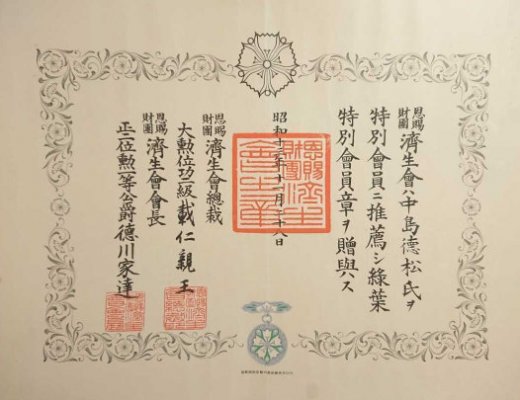 恩賜財團濟生會ハ中島德松氏ヲ
特別會員ニ推薦シ綠葉
特別會員章ヲ贈與ス
昭和十二年十一月二十八日
恩賜財團濟生會總裁
大勲位功二級載仁親王
恩賜財團濟生會會長
正二位勲一等公爵德川家達
恩賜財團濟生會之章